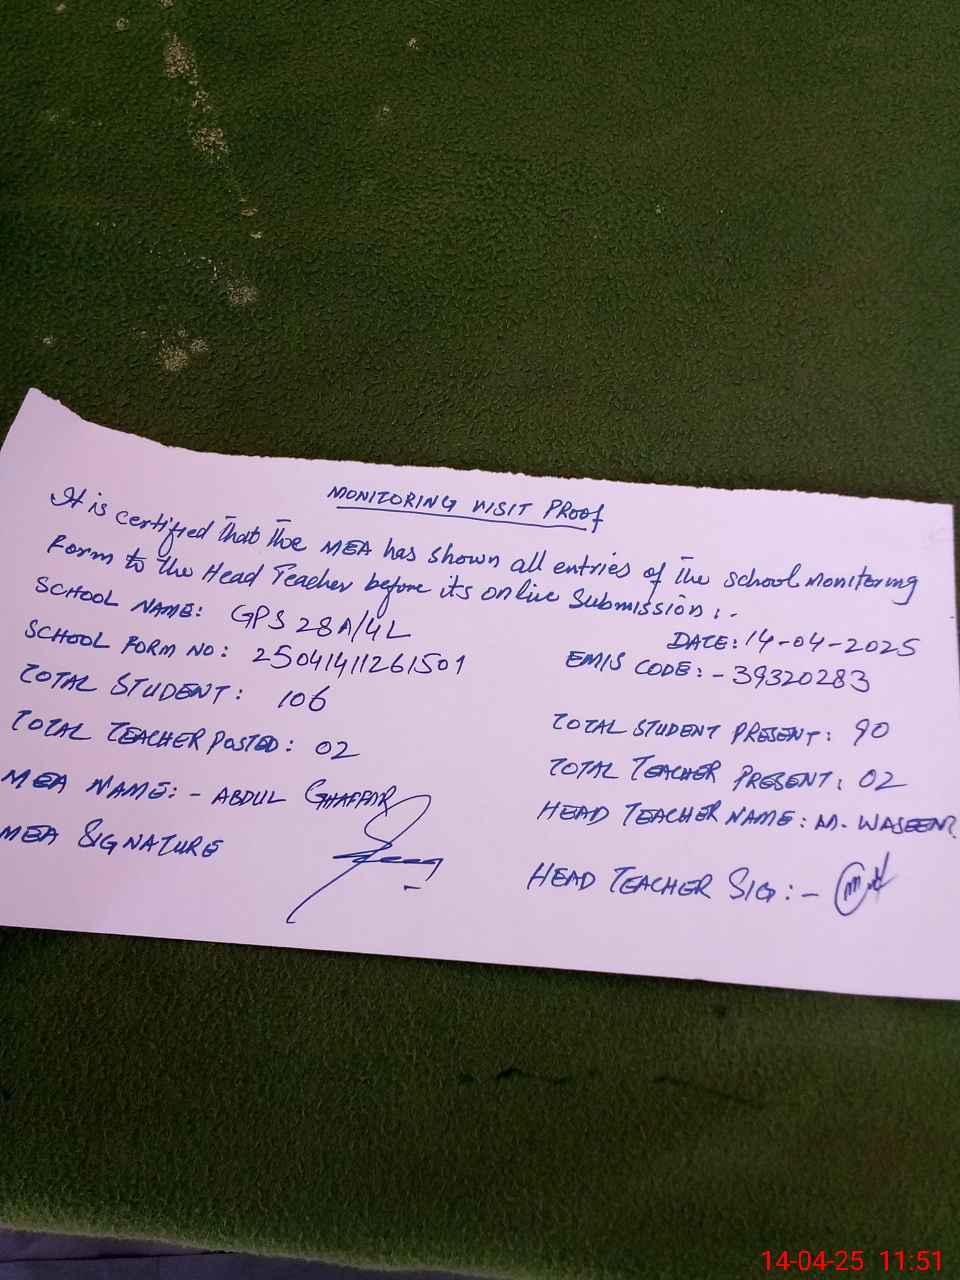 MONITORING VISIT PROOF
It is certified that the MEA has shown all entries of the school monitoring
Form to the Head Teacher before its online submission:-
SCHOOL NAME: GPS 28A/4L
DATE: 14-04-2025
SCHOOL FORM NO: 25041411261501
EMIS CODE:- 39320283
TOTAL STUDENT: 106
TOTAL STUDENT PRESENT: 90
TOTAL TEACHER POSTED: 02
TOTAL TEACHER PRESENT: 02
MEA NAME:- ABDUL GHAFFAR
HEAD TEACHER NAME: M. WASEEM
MEA SIGNATURE
HEAD TEACHER SIG:-
14-04-25 11:51